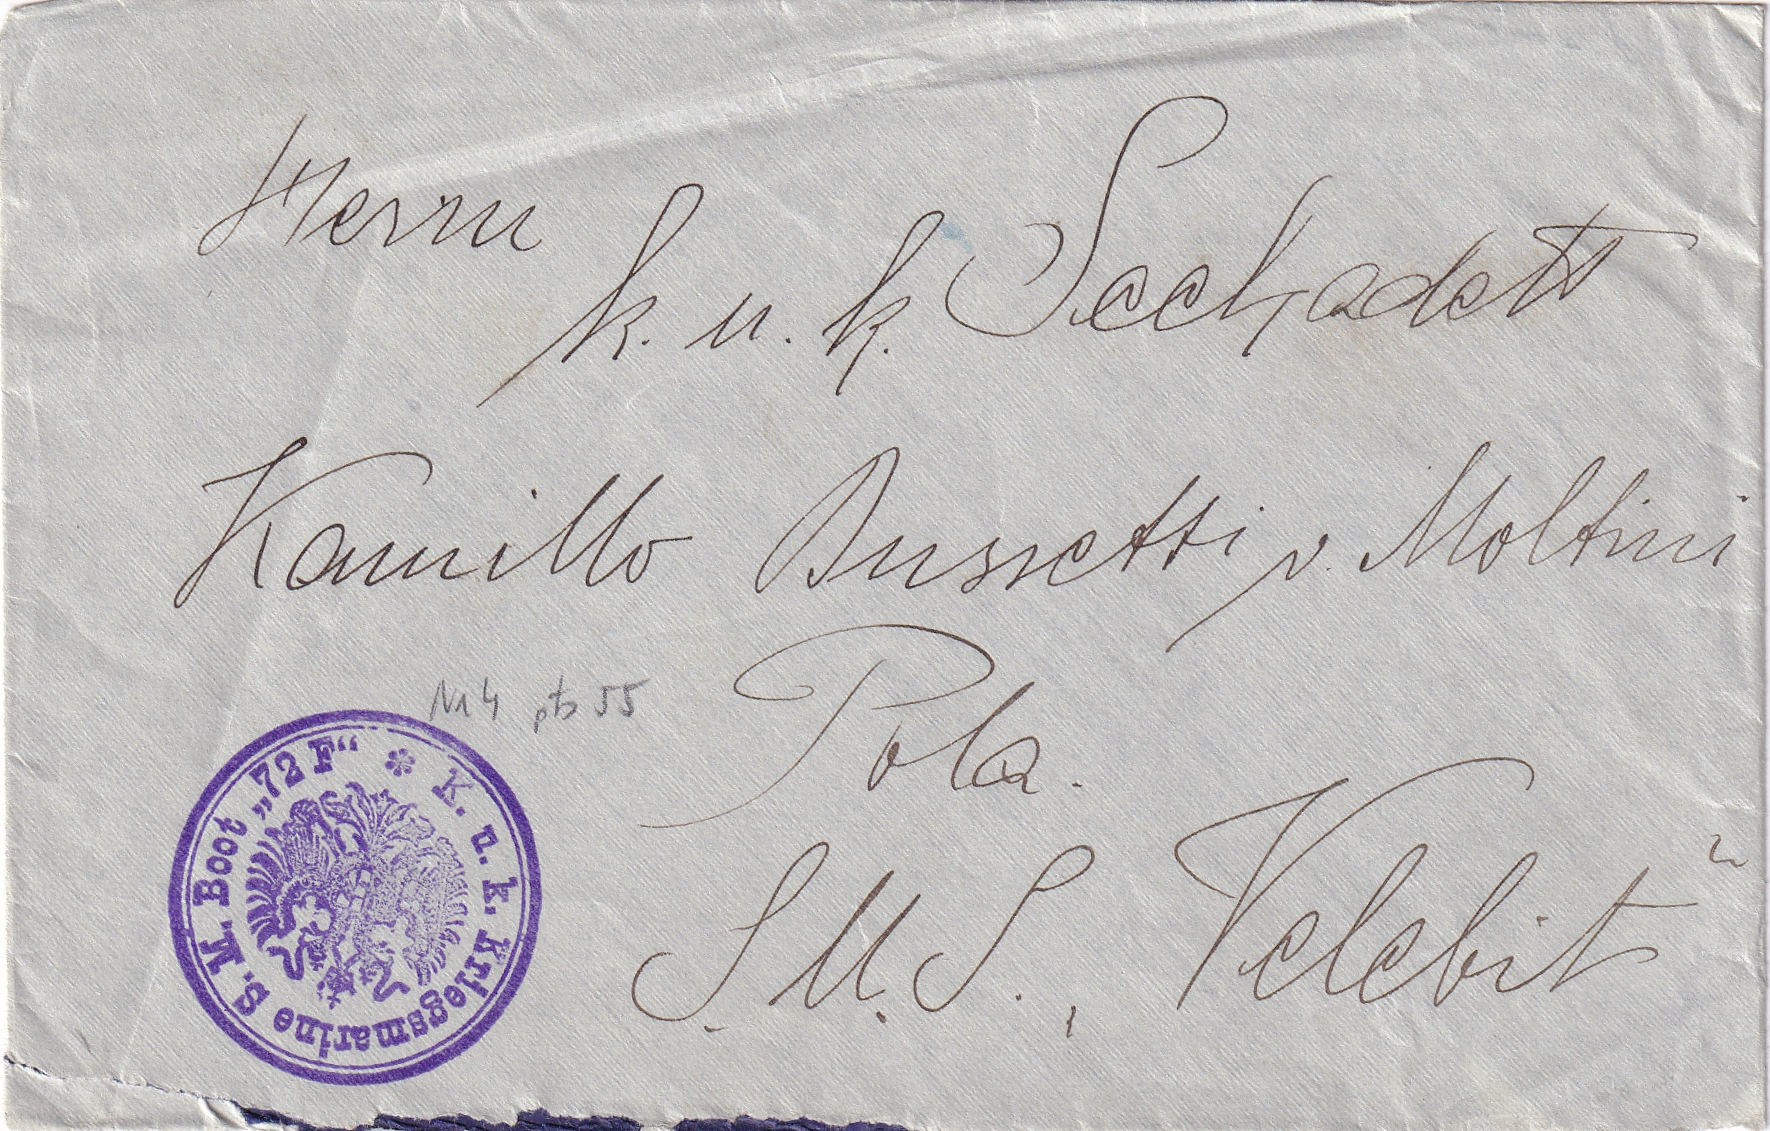 Herrn
k. u. k. Seekadett
Kamillo Bussetti v. Moltini
Pola.
S. M. S. „Velebit“
N14 pts 55
K. u. k. Kriegsmarine S. M. Boot „72 F“ *